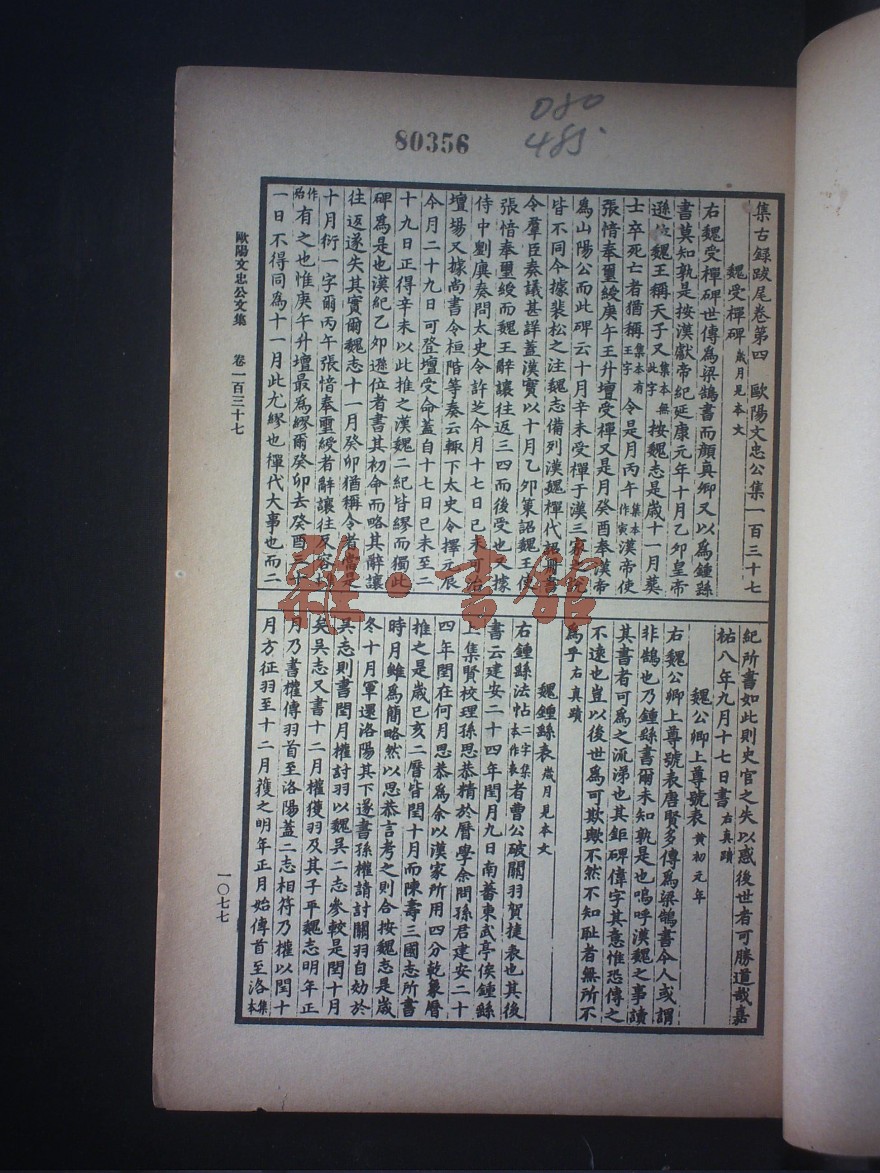 080
485
80356
集古録跋尾卷第四　歐陽文忠公集一百三十七
魏受禪碑 歲月見本文
右魏受禪碑世傳爲梁鵠書而顔真卿又以爲鍾繇
書莫知孰是按漢獻帝紀延康元年十月乙卯皇帝
遜位魏王稱天子又 集本無此字 按魏志是歲十一月葬
士卒死亡者猶稱 集本有王字 令是月丙午 集本作寅 漢帝使
張愔奉璽綬庚午王升壇受禪又是月癸酉奉漢帝
爲山陽公而此碑云十月辛未受禪于漢三家之說
皆不同今據裴松之注魏志備列漢魏禪代詔册書
令羣臣奏議甚詳蓋漢實以十月乙卯策詔魏王使
張愔奉璽綬而魏王辭讓往返三四而後受也又據
侍中劉廙奏問太史令許芝今月十七日己未可治
壇場又據尚書令桓階等奏云輙下太史令擇元辰
今月二十九日可登壇受命蓋自十七日己未至二
十九日正得辛未以此推之漢魏二紀皆繆而獨此
碑爲是也漢紀乙卯遜位者書其初命而略其辭讓
往返遂失其實爾魏志十一月癸卯猶稱令者當是
十月衍一字爾丙午張愔奉璽綬者辭讓往反容
作始 有之也惟庚午升壇最爲繆爾癸卯去癸酉三十
一日不得同為十一月此尤繆也禪代大事也而二
紀所書如此則史官之失以惑後世者可勝道哉嘉
祐八年九月十七日書 右真蹟
魏公卿上尊號表 黄初元年
右魏公卿上尊號表唐賢多傳爲梁鵠書今人或謂
非鵠也乃鍾繇書爾未知孰是也嗚呼漢魏之事讀
其書者可為之流涕也其鉅碑偉字其意惟恐傳之
不遠也豈以後世爲可欺歟不然不知耻者無所不
爲乎 右真蹟
魏鍾繇表 歲月見本文
右鍾繇法帖 二字集本作表 者曹公破關羽賀捷表也其後
書云建安二十四年閏月九日南蕃東武亭侯鍾繇
上集賢校理孫思恭精於曆學余問孫君建安二十
四年閏在何月思恭爲余以漢家所用四分乾象曆
推之是歲己亥二曆皆閏十月而陳壽三國志所書
時月雖爲簡略然以思恭言考之則合按魏志是歲
冬十月軍還洛陽其下遂書孫權請討關羽自効於
吳志則書閏月權討羽以魏吳二志參較是閏十月
矣吳志又書十二月權獲羽及其子平魏志明年正
月乃書權傳羽首至洛陽蓋二志相符乃權以閏十
月方征羽至十二月獲之明年正月始傳首至洛 集本
歐陽文忠公文集　卷一百三十七
一〇七七
雜·書館